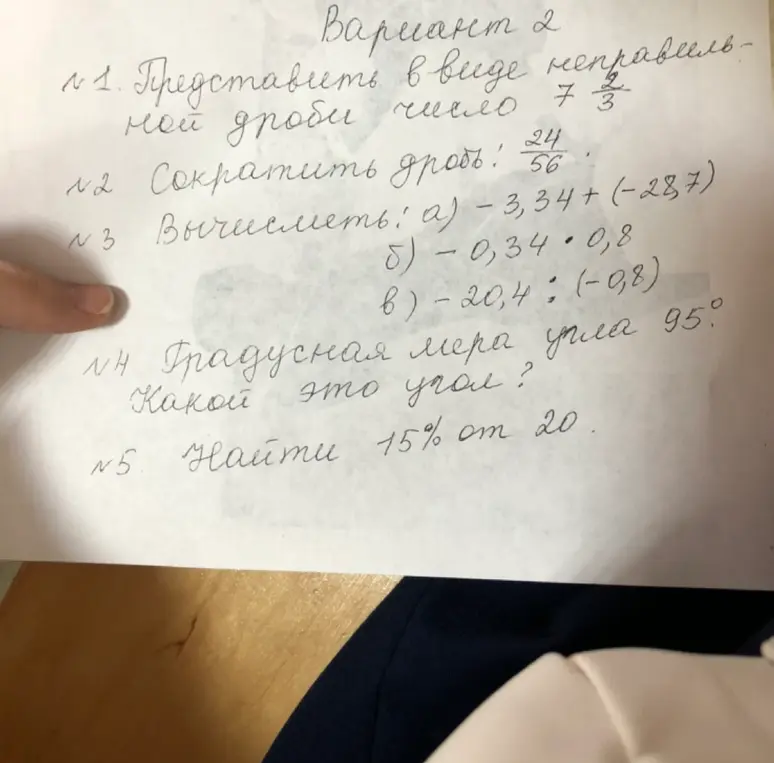 Вариант 2
№1. Представить в виде неправиль-
ной дроби число 7 2/3
№2 Сократить дробь: 24/56.
№3 Вычислить: а) -3,34 + (-28,7)
б) -0,34 · 0,8
в) -20,4 : (-0,8)
№4 Градусная мера угла 95°.
Какой это угол?
№5. Найти 15% от 20.